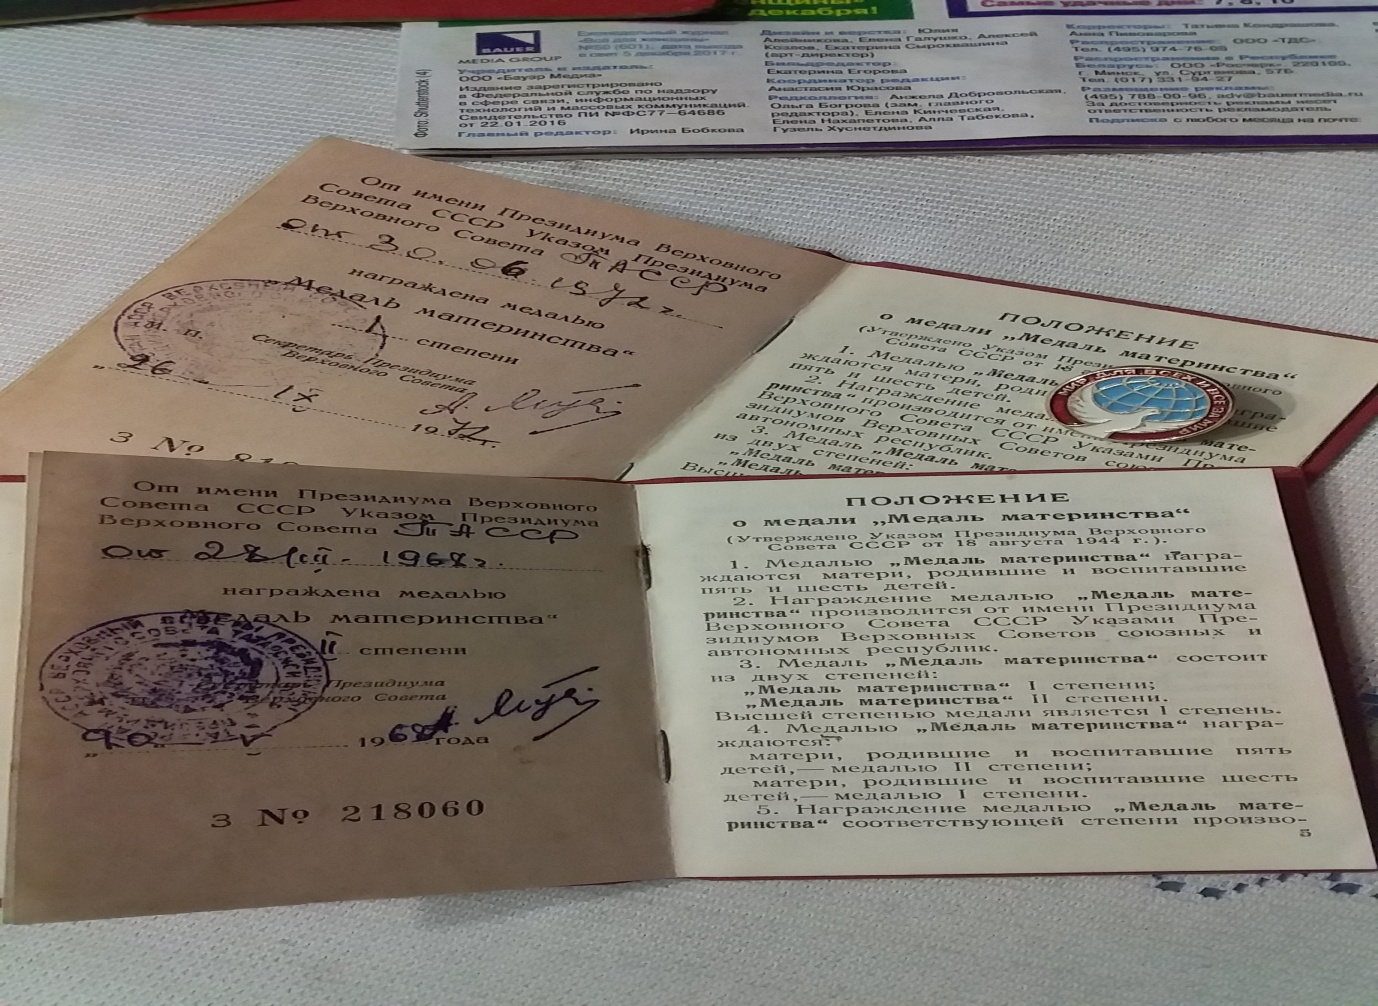 щины»
декабря!
Самые удачные дни: 7, 8, 10
BAUER
MEDIA GROUP
Еженедельный журнал
«Всё для женщины»
№50 (601), дата выхода
в свет 5 декабря 2017 г.
Учредитель и издатель:
ООО «Бауэр Медиа»
Издание зарегистрировано
в Федеральной службе по надзору
в сфере связи, информационных
технологий и массовых коммуникаций.
Свидетельство ПИ №ФС77–64686
от 22.01.2016
Главный редактор: Ирина Бобкова
Фото: Shutterstock (4)
Дизайн и верстка: Юлия
Алейникова, Елена Галушко, Алексей
Козлов, Екатерина Сыроквашина
(арт-директор)
Бильдредактор:
Екатерина Егорова
Координатор редакции:
Анастасия Юрасова
Редколлегия: Анжела Добровольская,
Ольга Богрова (зам. главного
редактора), Елена Кинчевская,
Елена Нахапетова, Алла Табекова,
Гузель Хуснетдинова
Корректоры: Татьяна Кондрашова,
Анна Пивоварова
Распространение: ООО «ТДС».
Тел. (495) 974-76-03
Распространение в Республике
Беларусь: ООО «Росчерк» 220103,
г. Минск, ул. Сурганова, 57Б
Тел. (017) 331-94-27
Размещение рекламы:
(495) 788-00-96, adv@bauermedia.ru
За достоверность рекламы несет
ответственность рекламодатель
Подписка с любого месяца на почте:
От имени Президиума Верховного
Совета СССР Указом Президиума
Верховного Совета ТАССР
от 30. 06 1972 г.
награждена медалью
„Медаль материнства“
I степени
М. П.
Секретарь Президиума
Верховного Совета
„26 IX 1972
З №
ПОЛОЖЕНИЕ
о медали „Медаль материнства“
(Утверждено Указом Прези
Совета СССР от 18
1. Медалью „Медаль
ждаются матери, роди
пять и шесть детей.
2. Награждение меда
ринства“ производится от имени Президиума
Верховного Совета СССР Указами Пре-
зидиумов Верховных Советов союз
автономных республик.
3. Медаль „Медаль мате
из двух степеней:
„Медаль матер
„Медаль
Высш
МИР ДЛЯ ВСЕХ И ВСЕ ЗА МИР
От имени Президиума Верховного
Совета СССР Указом Президиума
Верховного Совета ТАССР
от 28/III - 1968 г.
награждена медалью
„Медаль материнства“
II степени
Президиума
Верховного Совета
1968 года
З № 218060
ПОЛОЖЕНИЕ
о медали „Медаль материнства“
(Утверждено Указом Президиума Верховного
Совета СССР от 18 августа 1944 г.).
1. Медалью „Медаль материнства“ награ-
ждаются матери, родившие и воспитавшие
пять и шесть детей.
2. Награждение медалью „Медаль мате-
ринства“ производится от имени Президиума
Верховного Совета СССР Указами Пре-
зидиумов Верховных Советов союзных и
автономных республик.
3. Медаль „Медаль материнства“ состоит
из двух степеней:
„Медаль материнства“ I степени;
„Медаль материнства“ II степени.
Высшей степенью медали является I степень.
4. Медалью „Медаль материнства“ награ-
ждаются:
матери, родившие и воспитавшие пять
детей,— медалью II степени;
матери, родившие и воспитавшие шесть
детей,— медалью I степени.
5. Награждение медалью „Медаль мате-
ринства“ соответствующей степени произво-
5